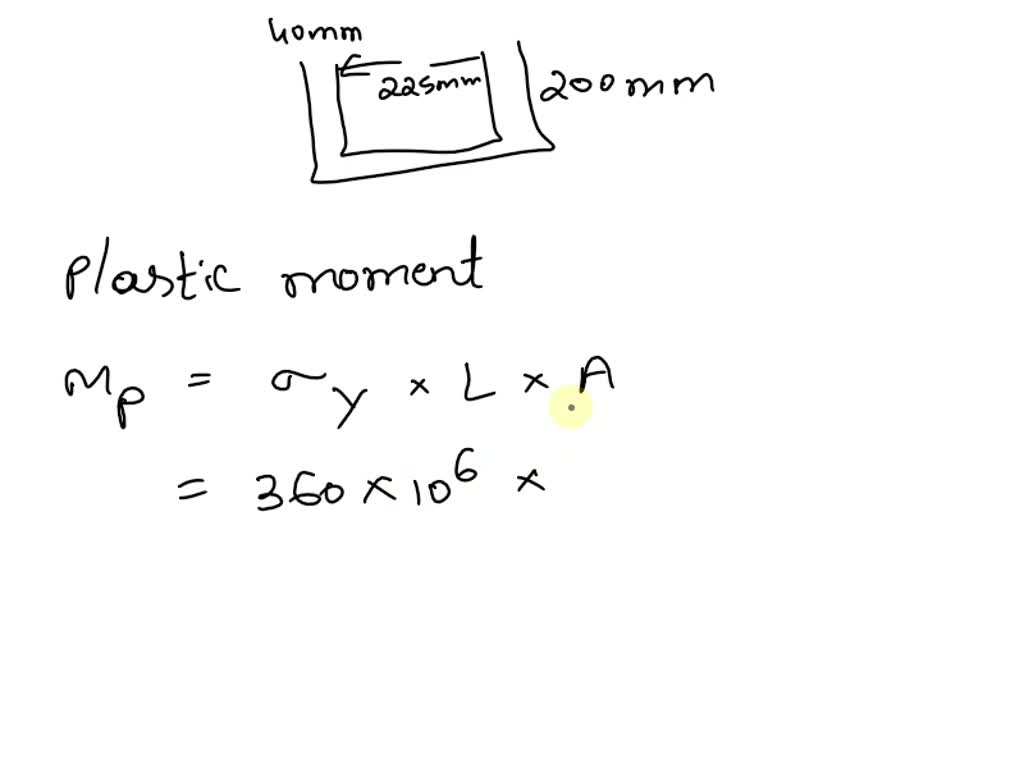 40mm
225mm
200mm
Plastic moment
Mp = σy × L × A
= 360 × 10^6 ×